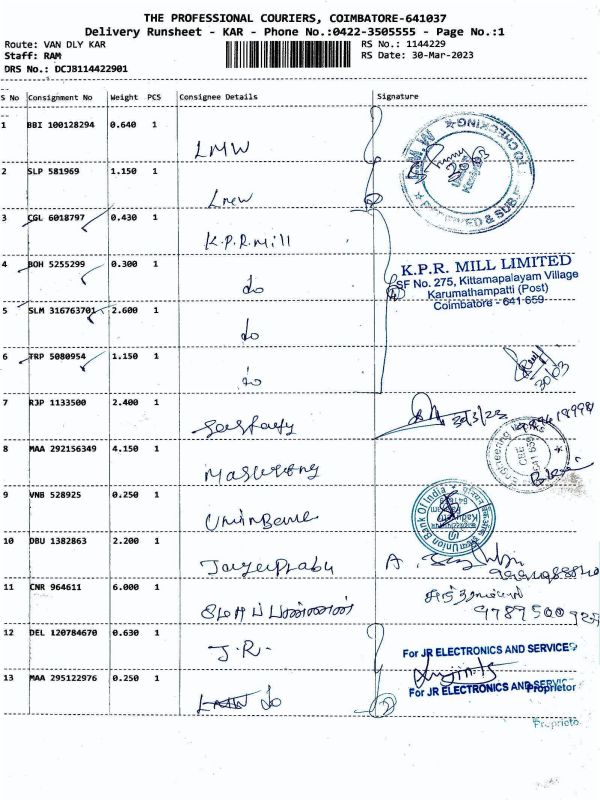 THE PROFESSIONAL COURIERS, COIMBATORE-641037
Delivery Runsheet - KAR - Phone No.:0422-3505555 - Page No.:1
Route: VAN DLY KAR RS No.: 1144229
Staff: RAM RS Date: 30-Mar-2023
DRS No.: DCJB114422901
S No Consignment No Weight PCS Consignee Details Signature
1 BBI 100128294 0.640 1 LMW
2 SLP 581969 1.150 1
3 CGL 6018797 0.430 1 K.P.R.mill
4 BOH 5255299 0.300 1 do
K.P.R. MILL LIMITED
SF No. 275, Kittamapalayam Village
Karumathampatti (Post)
Coimbatore - 641 659
5 SLM 316763701 2.600 1 do
6 TRP 5080954 1.150 1 do
30/03
7 RJP 1133500 2.400 1 30/3/23
8 MAA 292156349 4.150 1
Engineering
9 VNB 528925 0.250 1
Union Bank Of India
10 DBU 1382863 2.200 1
11 CNR 964611 6.000 1
12 DEL 120784670 0.630 1 J.R.
For JR ELECTRONICS AND SERVICES
13 MAA 295122976 0.250 1 do
For JR ELECTRONICS AND SERVIC
Proprietor
Proprieto